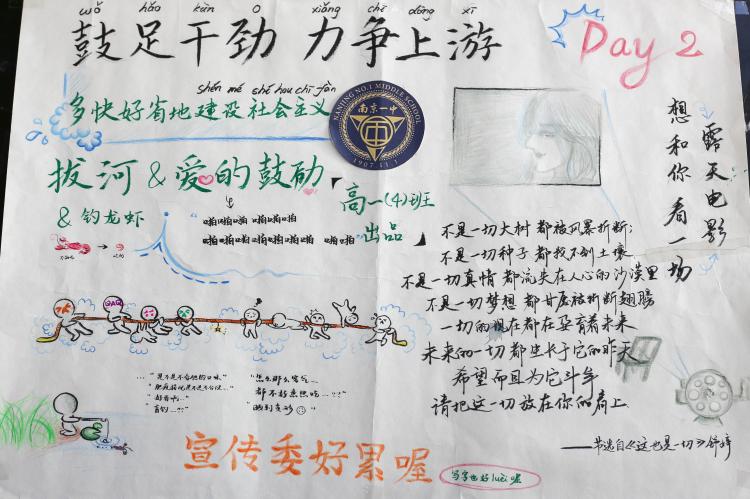 wǒ hǎo kàn o xiǎng chī dōng xī
鼓足干劲 力争上游
Day 2
shén mé shé hou chī fàn
多快好省地建设社会主义
NANJING NO.1 MIDDLE SCHOOL
南京一中
1907.11.1
拔河 & 爱的鼓励
高一(4)班
出品
& 钓龙虾
啪啪 啪啪啪
啪啪啪啪 啪啪啪 啪啪
露天电影
想和你看一场
不是一切大树 都被风暴折断;
不是一切种子 都找不到土壤
不是一切真情 都流失在人心的沙漠里
不是一切梦想 都甘愿被折断翅膀
一切的现在都在孕育着未来
未来的一切都生长于它的昨天
希望而且为它斗争
请把这一切放在你的肩上
——节选自《这也是一切》舒婷
...."是不是不合他的口味"
"好香啊..."
"怎么那么客气
都不好意思吃...??"
宣传委好累喔
写字也好lüèi喔